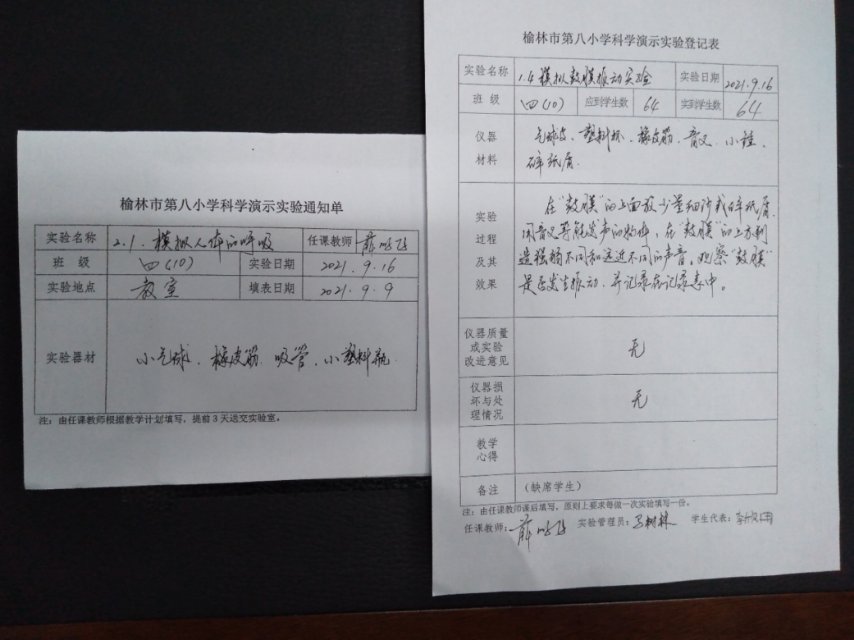 榆林市第八小学科学演示实验通知单
实验名称 2.1.模拟人体的呼吸 任课教师 薛
班 级 四(10) 实验日期 2021.9.16
实验地点 教室 填表日期 2021.9.9
实验器材 小气球、橡皮筋、吸管、小塑料瓶
注：由任课教师根据教学计划填写，提前3天送交实验室。
榆林市第八小学科学演示实验登记表
实验名称 1.4模拟鼓膜振动实验 实验日期 2021.9.16
班 级 四(10) 应到学生数 64 实到学生数 64
仪器
材料
气球皮、塑料杯、橡皮筋、音叉、小锤、
碎纸屑.
实验
过程
及其
效果
在"鼓膜"的上面放少量细沙或碎纸屑
用音叉等能发声的物体，在"鼓膜"的上方制
造强弱不同和远近不同的声音。观察"鼓膜"
是否发生振动，并记录在记录表中。
仪器质量
或实验
改进意见
无
仪器损
坏与处
理情况
无
教学
心得
备注 （缺席学生）
注：由任课教师课后填写，原则上要求每做一次实验填写一份。
任课教师：薛 实验管理员：马树林 学生代表：李